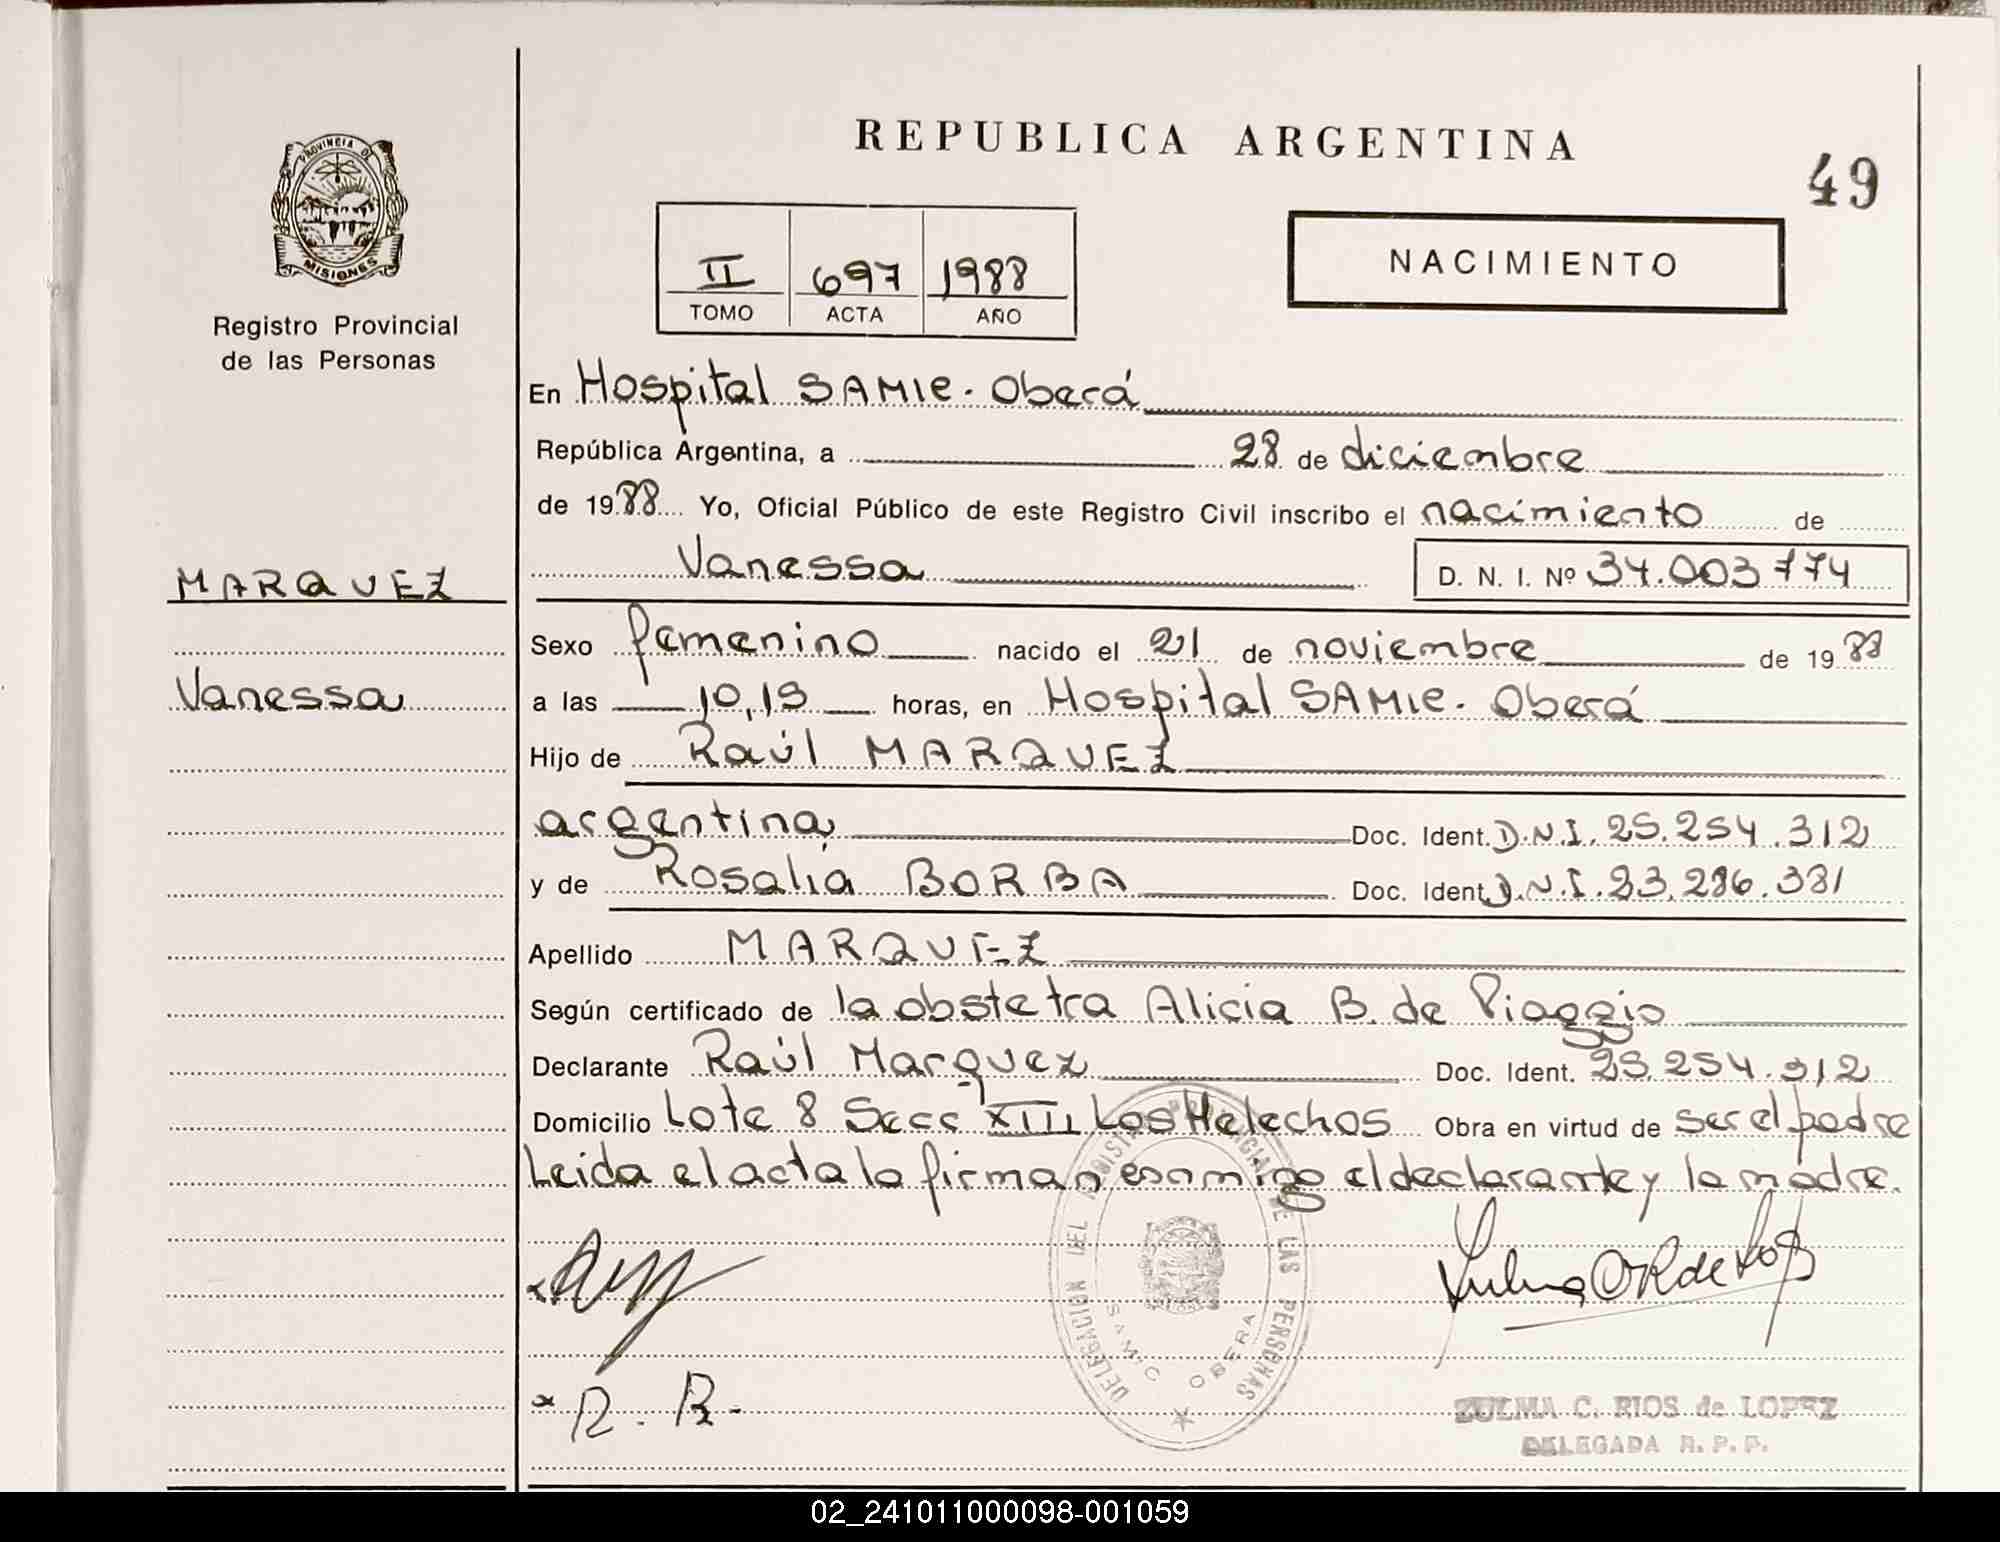 REPUBLICA ARGENTINA
49
PROVINCIA DE
MISIONES
Registro Provincial
de las Personas
II 697 1988
TOMO ACTA AÑO
NACIMIENTO
En Hospital SAMIC. Oberá
República Argentina, a 28 de diciembre
de 1988 Yo, Oficial Público de este Registro Civil inscribo el nacimiento de
Vanessa D. N. I. Nº 34.003774
MARQUEZ
Sexo femenino nacido el 21 de noviembre de 1988
Vanessa
a las 10,15 horas, en Hospital SAMIC. Oberá
Hijo de Raúl MARQUEZ
argentina Doc. Ident. D.N.I. 25.254.312
y de Rosalía BORBA Doc. Ident. D.N.I. 23.286.381
Apellido MARQUEZ
Según certificado de la obstetra Alicia B. de Piaggio
Declarante Raúl Marquez Doc. Ident. 25.254.312
Domicilio Lote 8 Secc XIII Los Helechos Obra en virtud de ser el padre
Leida el acta la firman conmigo el declarante y la madre.
DELEGACION DEL REGISTRO PROVINCIAL DE LAS PERSONAS
SAMIC OBERA
R. B.
ZULMA C. RIOS de LOPEZ
DELEGADA R. P. P.
02_241011000098-001059